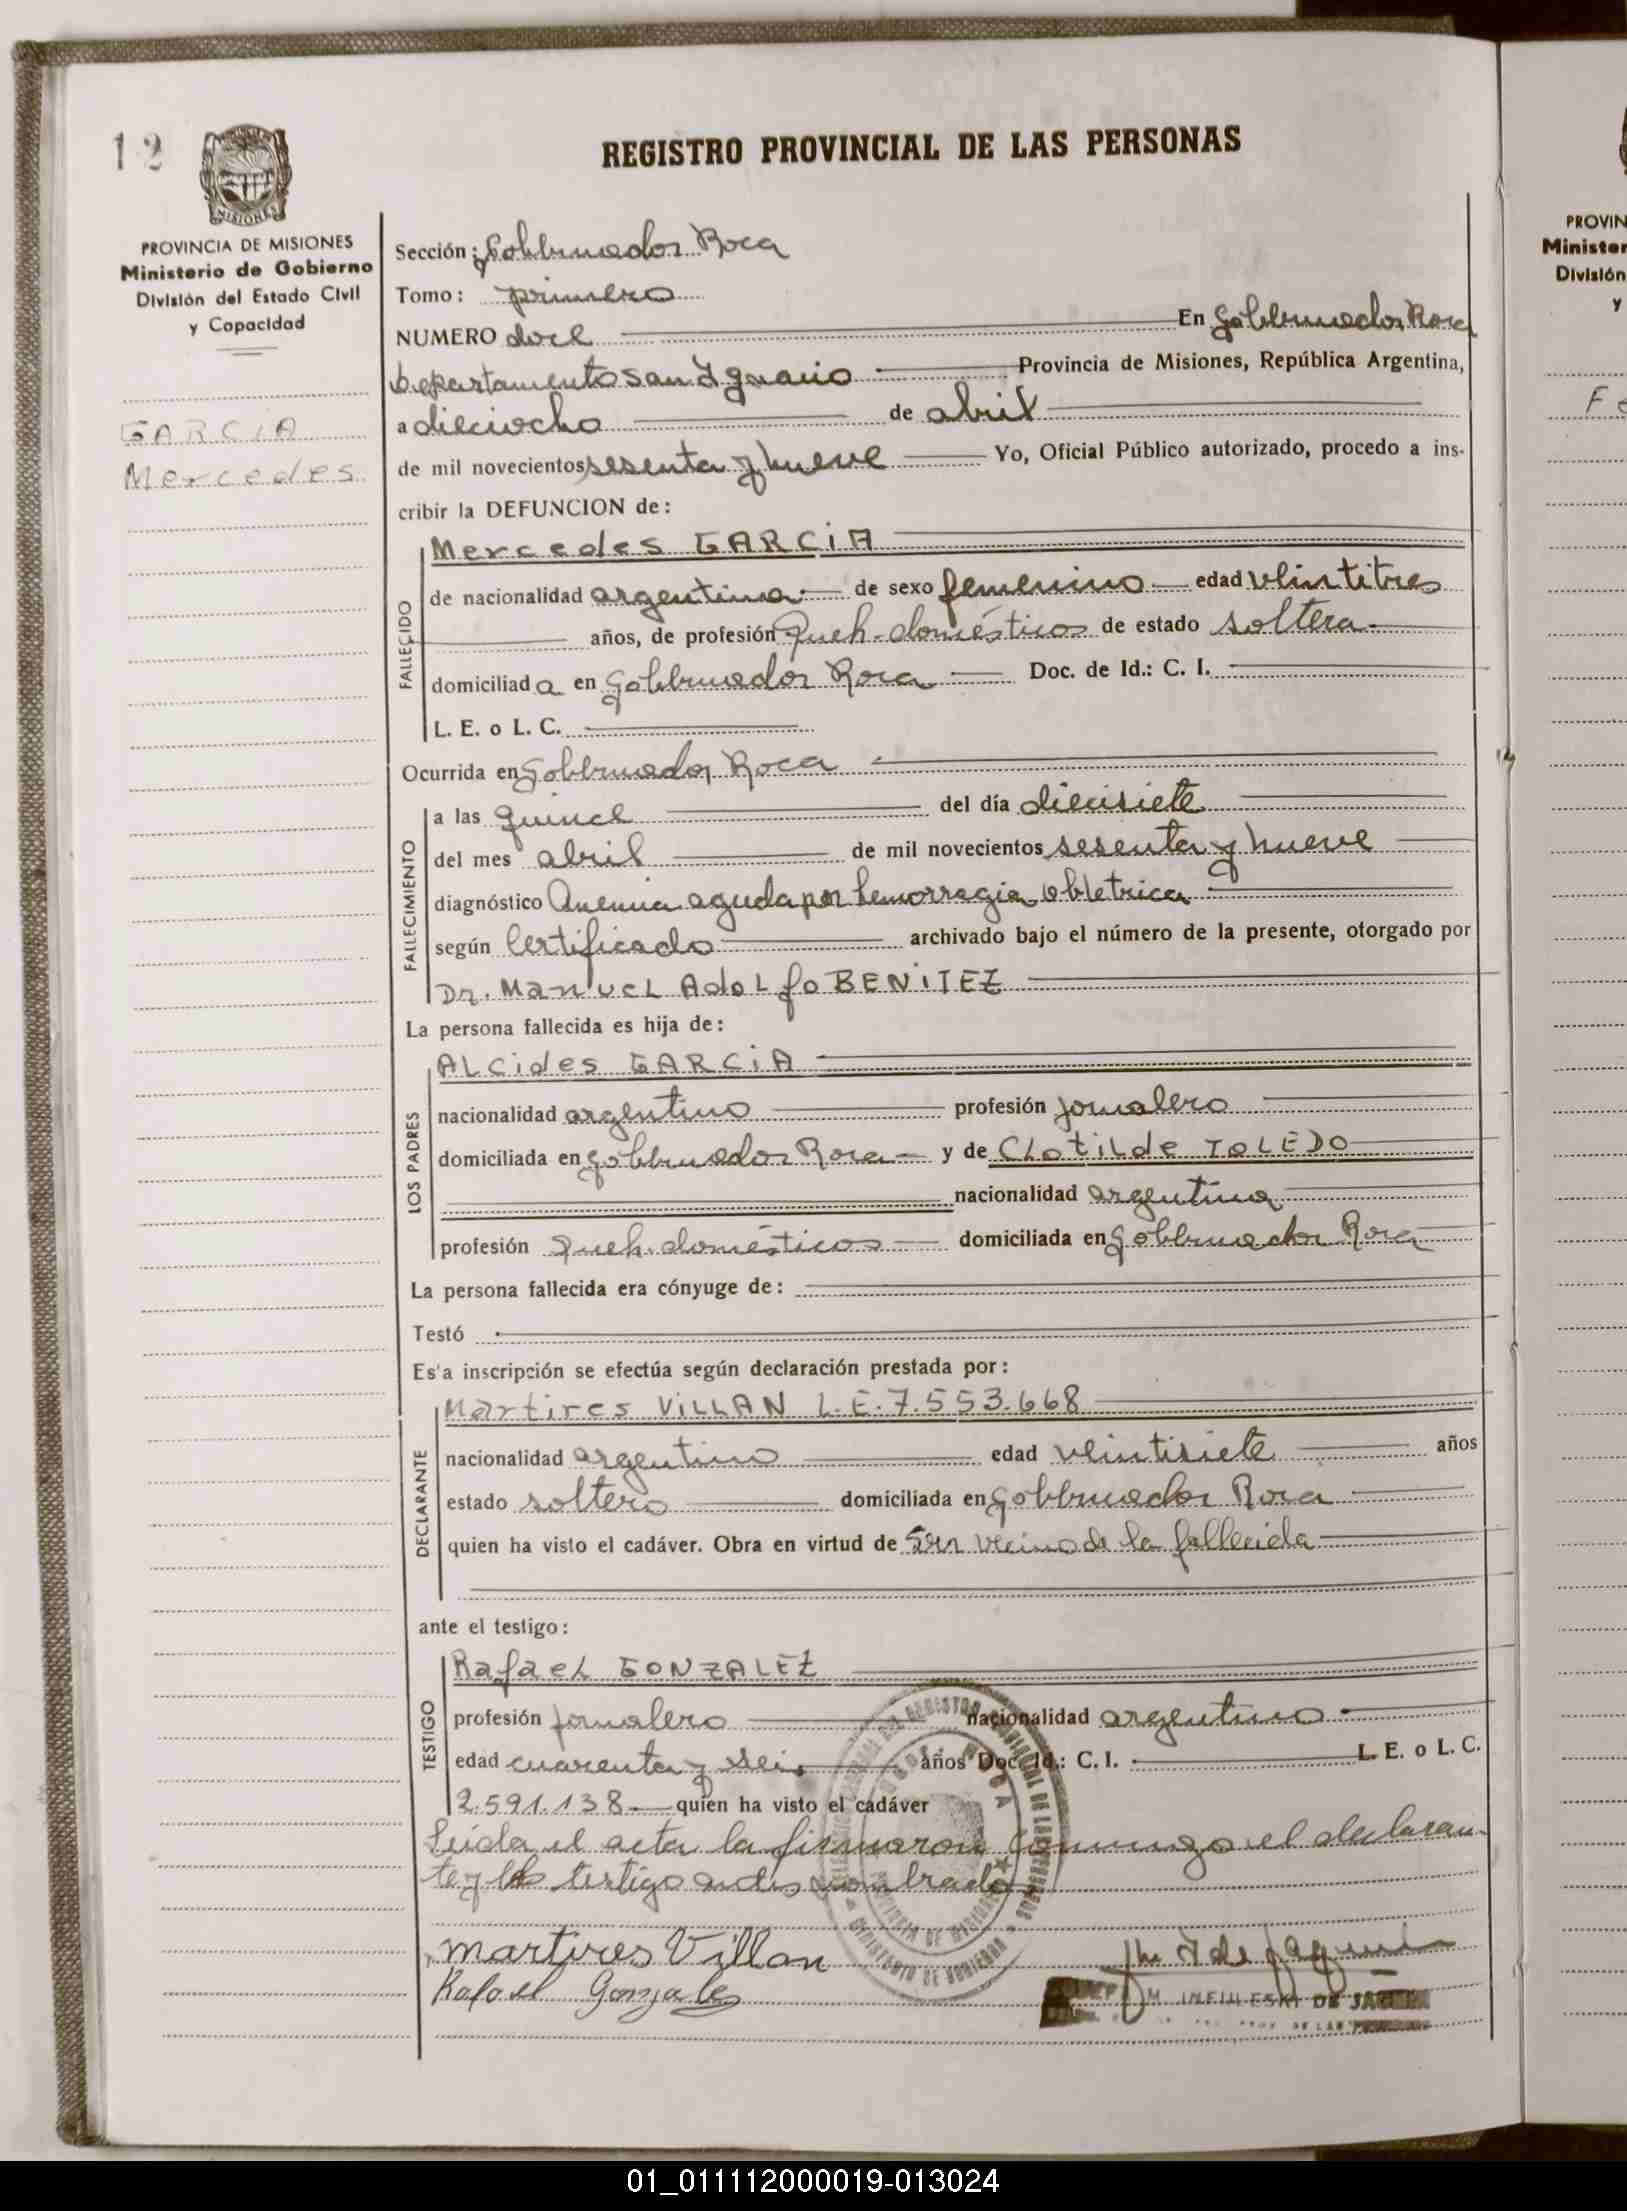 12
REGISTRO PROVINCIAL DE LAS PERSONAS
MISIONES
PROVINCIA DE MISIONES
Ministerio de Gobierno
División del Estado Civil
y Capacidad
GARCIA
Mercedes
Sección: Gobernador Roca
Tomo: primero
NUMERO doce En Gobernador Roca
Departamento San Ignacio Provincia de Misiones, República Argentina,
a dieciocho de abril
de mil novecientos sesenta y nueve Yo, Oficial Público autorizado, procedo a ins-
cribir la DEFUNCION de:
FALLECIDO
Mercedes GARCIA
de nacionalidad argentina de sexo femenino edad veintitres
años, de profesión Queh. domésticos de estado soltera
domiciliada en Gobernador Roca Doc. de Id.: C. I.
L. E. o L. C.
Ocurrida en Gobernador Roca
FALLECIMIENTO
a las quince del día diecisiete
del mes abril de mil novecientos sesenta y nueve
diagnóstico Anemia aguda por hemorragia obletrica
según Certificado archivado bajo el número de la presente, otorgado por
Dr. Manuel Adolfo BENITEZ
La persona fallecida es hija de:
LOS PADRES
ALcides GARCIA
nacionalidad argentino profesión jornalero
domiciliada en Gobernador Roca y de CLotiLde TOLEDO
nacionalidad argentina
profesión Queh. domésticos domiciliada en Gobernador Roca
La persona fallecida era cónyuge de:
Testó
Es'a inscripción se efectúa según declaración prestada por:
DECLARANTE
Martires VILLAN L.E. 7.553.668
nacionalidad argentino edad veintisiete años
estado soltero domiciliada en Gobernador Roca
quien ha visto el cadáver. Obra en virtud de Ser vecino de la fallecida
ante el testigo:
TESTIGO
Rafael GONZALEZ
profesión jornalero nacionalidad argentino
edad cuarenta y seis años Doc. Id.: C. I. L. E. o L. C.
2.591.138 quien ha visto el cadáver
Leida el acta la firmaron conmigo el declaran-
te y el testigo antes nombrado
Martires Villan
Rafael Gonzales
DE LAS
PROVIN
Minister
División
y
01_011112000019-013024